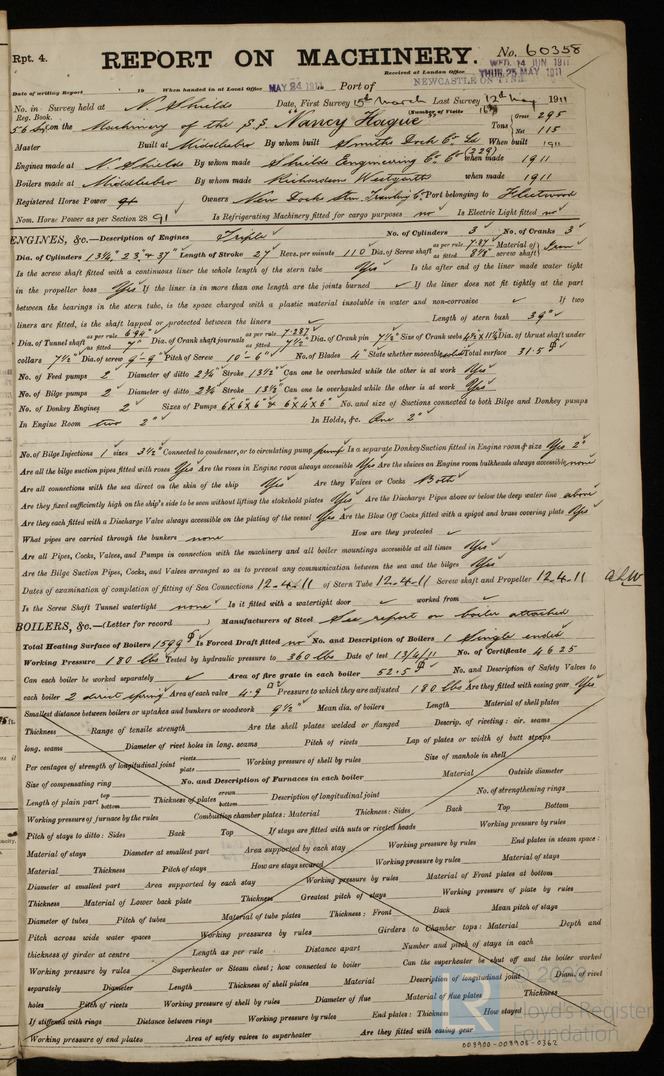 Rpt. 4.
REPORT ON MACHINERY.
No. 60358
WED. 14 JUN 1911
Received at London Office THUR. 25 MAY 1911
Date of writing Report 19 When handed in at Local Office MAY 24 1911 Port of NEWCASTLE ON TYNE
No. in Survey held at N. Shields Date, First Survey 15th March Last Survey 12th May 1911
Reg. Book. (Number of Visits 16)
56 Sup. on the Machinery of the S.S. Nancy Hague Tons Gross 295 Net 115
Master Built at Middlesbro By whom built Smiths Dock Co. Ld (229) When built 1911
Engines made at N. Shields By whom made Shields Engineering Co. when made 1911
Boilers made at Middlesbro By whom made Richardsons Westgarth when made 1911
Registered Horse Power 91 Owners New Docks Stm. Trawling Co. Port belonging to Fleetwood
Nom. Horse Power as per Section 28 91 Is Refrigerating Machinery fitted for cargo purposes no Is Electric Light fitted no
ENGINES, &c.—Description of Engines Triple No. of Cylinders 3 No. of Cranks 3
Dia. of Cylinders 13¾" 23" & 37" Length of Stroke 27 Revs. per minute 110 Dia. of Screw shaft as per rule 7.87 as fitted 8⅛" Material of screw shaft Iron
Is the screw shaft fitted with a continuous liner the whole length of the stern tube Yes Is the after end of the liner made water tight
in the propeller boss Yes If the liner is in more than one length are the joints burned If the liner does not fit tightly at the part
between the bearings in the stern tube, is the space charged with a plastic material insoluble in water and non-corrosive If two
liners are fitted, is the shaft lapped or protected between the liners Length of stern bush 39"
Dia. of Tunnel shaft as per rule 6.94" as fitted 7" Dia. of Crank shaft journals as per rule 7.287 as fitted 7½" Dia. of Crank pin 7½" Size of Crank webs 4½ x 11¼ Dia. of thrust shaft under
collars 7½" Dia. of screw 9'-9" Pitch of Screw 10'-6" No. of Blades 4 State whether moveable solid Total surface 31.5
No. of Feed pumps 2 Diameter of ditto 2¾ Stroke 13½ Can one be overhauled while the other is at work Yes
No. of Bilge pumps 2 Diameter of ditto 2¾ Stroke 13½ Can one be overhauled while the other is at work Yes
No. of Donkey Engines 2 Sizes of Pumps 6x6x6" & 6x4x6" No. and size of Suctions connected to both Bilge and Donkey pumps
In Engine Room two 2" In Holds, &c. One 2"
No. of Bilge Injections 1 sizes 3½" Connected to condenser, or to circulating pump pump Is a separate Donkey Suction fitted in Engine room & size Yes 2"
Are all the bilge suction pipes fitted with roses Yes Are the roses in Engine room always accessible Yes Are the sluices on Engine room bulkheads always accessible none
Are all connections with the sea direct on the skin of the ship Yes Are they Valves or Cocks Both
Are they fixed sufficiently high on the ship's side to be seen without lifting the stokehold plates Yes Are the Discharge Pipes above or below the deep water line above
Are they each fitted with a Discharge Valve always accessible on the plating of the vessel Yes Are the Blow Off Cocks fitted with a spigot and brass covering plate Yes
What pipes are carried through the bunkers none How are they protected
Are all Pipes, Cocks, Valves, and Pumps in connection with the machinery and all boiler mountings accessible at all times Yes
Are the Bilge Suction Pipes, Cocks, and Valves arranged so as to prevent any communication between the sea and the bilges Yes
Dates of examination of completion of fitting of Sea Connections 12.4.11 of Stern Tube 12.4.11 Screw shaft and Propeller 12.4.11
Is the Screw Shaft Tunnel watertight none Is it fitted with a watertight door worked from
BOILERS, &c.—(Letter for record ) Manufacturers of Steel See report on boiler attached
Total Heating Surface of Boilers 1599 Is Forced Draft fitted no No. and Description of Boilers 1 Single ended
Working Pressure 180 lbs Tested by hydraulic pressure to 360 lbs Date of test 13/4/11 No. of Certificate 4625
Can each boiler be worked separately Area of fire grate in each boiler 52.5 No. and Description of Safety Valves to
each boiler 2 direct spring Area of each valve 4.9 Pressure to which they are adjusted 180 lbs Are they fitted with easing gear Yes
Smallest distance between boilers or uptakes and bunkers or woodwork 9½" Mean dia. of boilers Length Material of shell plates
Thickness Range of tensile strength Are the shell plates welded or flanged Descrip. of riveting: cir. seams
long. seams Diameter of rivet holes in long. seams Pitch of rivets Lap of plates or width of butt straps
Per centages of strength of longitudinal joint rivets plate Working pressure of shell by rules Size of manhole in shell
Size of compensating ring No. and Description of Furnaces in each boiler Material Outside diameter
Length of plain part top bottom Thickness of plates crown bottom Description of longitudinal joint No. of strengthening rings
Working pressure of furnace by the rules Combustion chamber plates: Material Thickness: Sides Back Top Bottom
Pitch of stays to ditto: Sides Back Top If stays are fitted with nuts or riveted heads Working pressure by rules
Material of stays Diameter at smallest part Area supported by each stay Working pressure by rules End plates in steam space:
Material Thickness Pitch of stays How are stays secured Working pressure by rules Material of stays
Diameter at smallest part Area supported by each stay Working pressure by rules Material of Front plates at bottom
Thickness Material of Lower back plate Thickness Greatest pitch of stays Working pressure of plate by rules
Diameter of tubes Pitch of tubes Material of tube plates Thickness: Front Back Mean pitch of stays
Pitch across wide water spaces Working pressures by rules Girders to Chamber tops: Material Depth and
thickness of girder at centre Length as per rule Distance apart Number and pitch of stays in each
Working pressure by rules Superheater or Steam chest; how connected to boiler Can the superheater be shut off and the boiler worked
separately Diameter Length Thickness of shell plates Material Description of longitudinal joint Diam. of rivet
holes Pitch of rivets Working pressure of shell by rules Diameter of flue Material of flue plates Thickness
If stiffened with rings Distance between rings Working pressure by rules End plates: Thickness How stayed
Working pressure of end plates Area of safety valves to superheater Are they fitted with easing gear
© 2020
Lloyd's Register
Foundation
008900-008908-0362